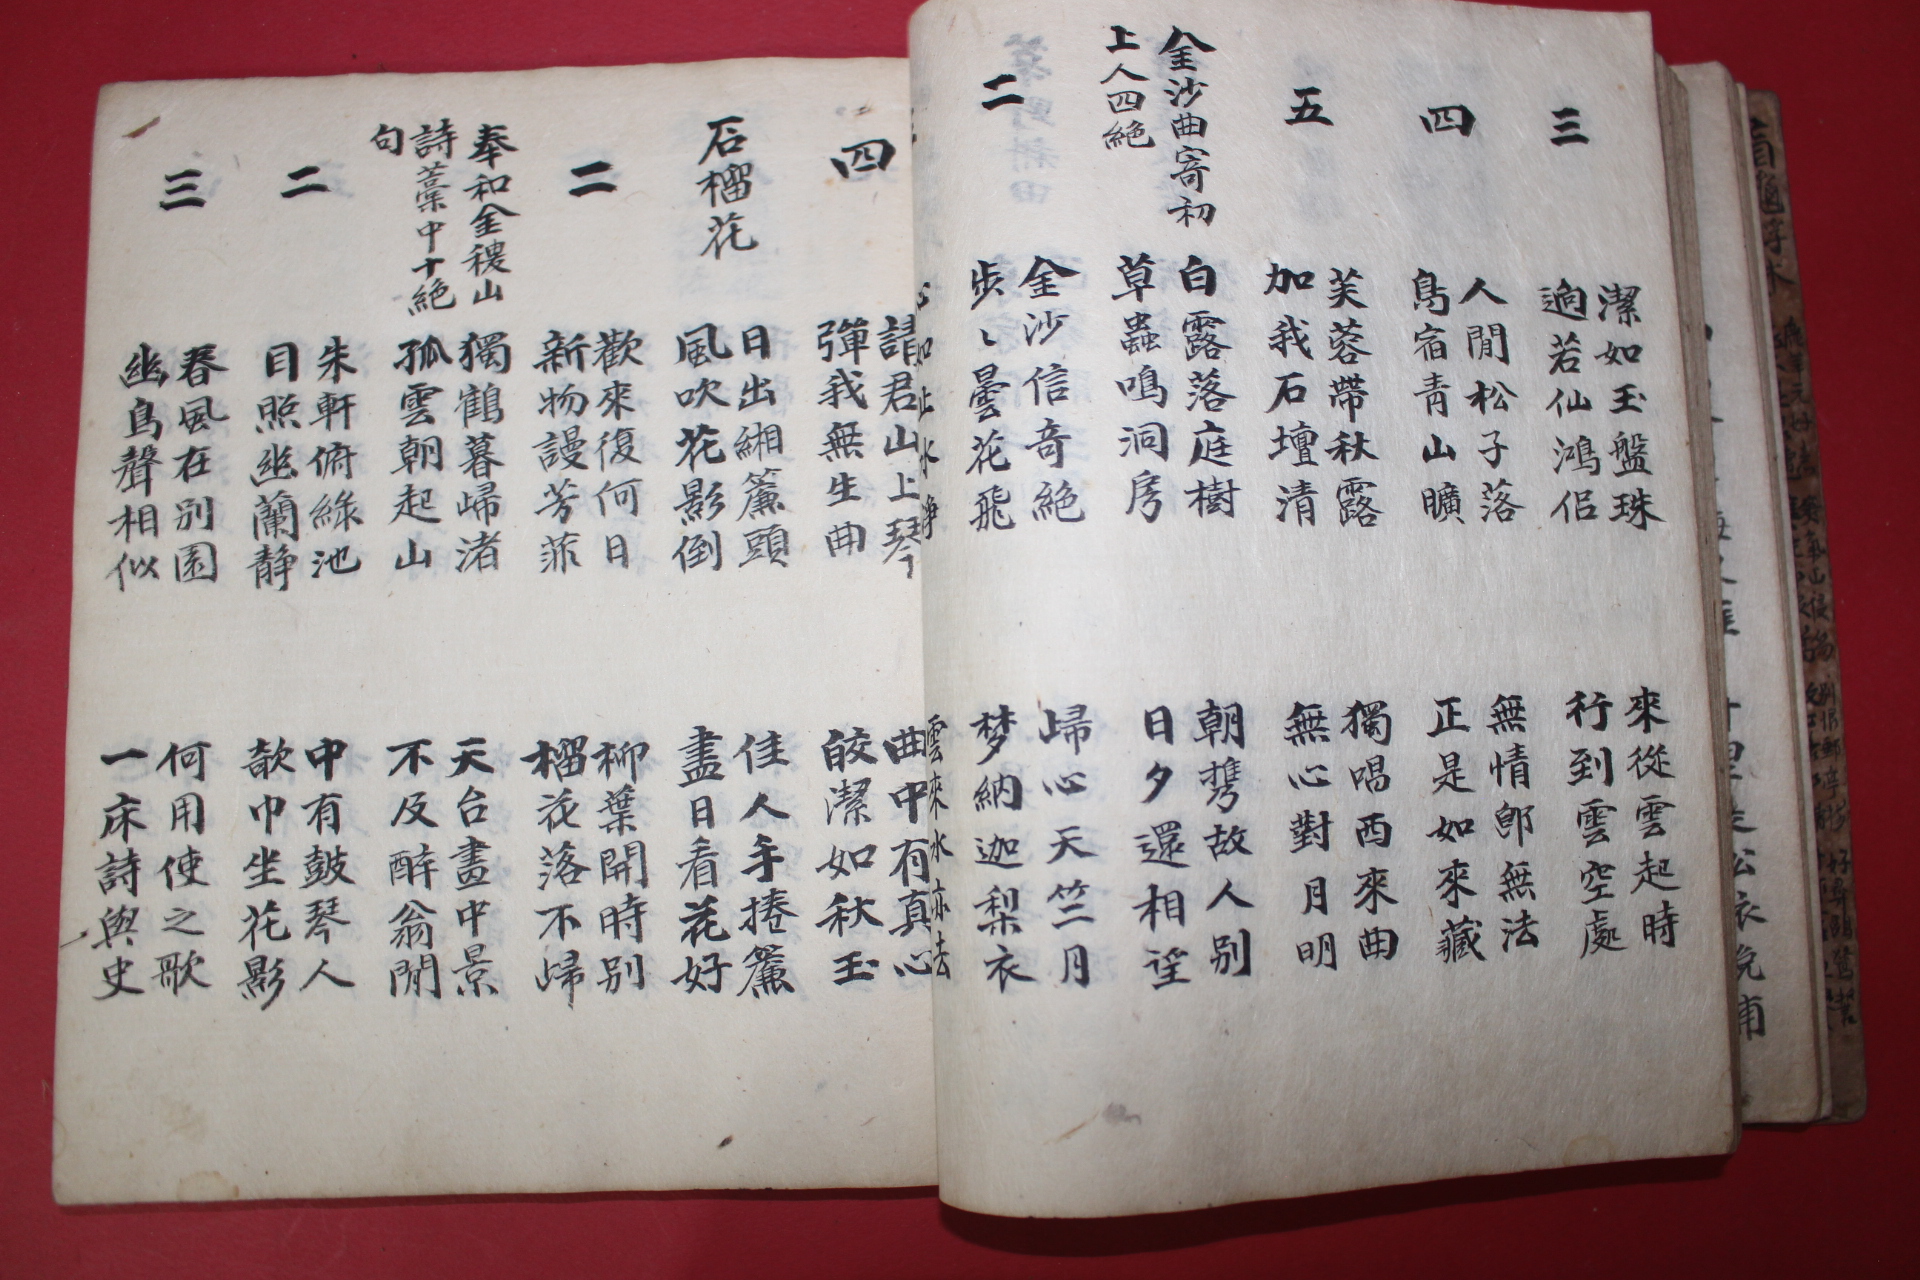 三
潔如玉盤珠
來從雲起時
逈若仙鴻侶
行到雲空處
四
人閒松子落
無情郎無法
鳥宿靑山曠
正是如來藏
五
芙蓉帶秋露
獨唱西來曲
加我石壇清
無心對月明
金沙曲寄初
上人四絶
白露落庭樹
朝携故人別
草蟲鳴洞房
日夕還相望
二
金沙信奇絶
歸心天竺月
步〻曇花飛
梦納迦梨衣
四
請君山上琴
曲中有真心
彈我無生曲
皎潔如秋玉
石榴花
日出緗簾頭
佳人手捲簾
風吹花影倒
盡日看花好
二
歡來復何日
柳葉開時別
新物謾芳菲
榴花落不歸
奉和金稷山
詩藁中十絶
句
獨鶴暮歸渚
天台畫中景
孤雲朝起山
不及醉翁閒
二
朱軒俯綠池
中有鼓琴人
目照幽蘭静
欹巾坐花影
三
春風在別園
何用使之歌
幽鳥聲相似
一床詩與史